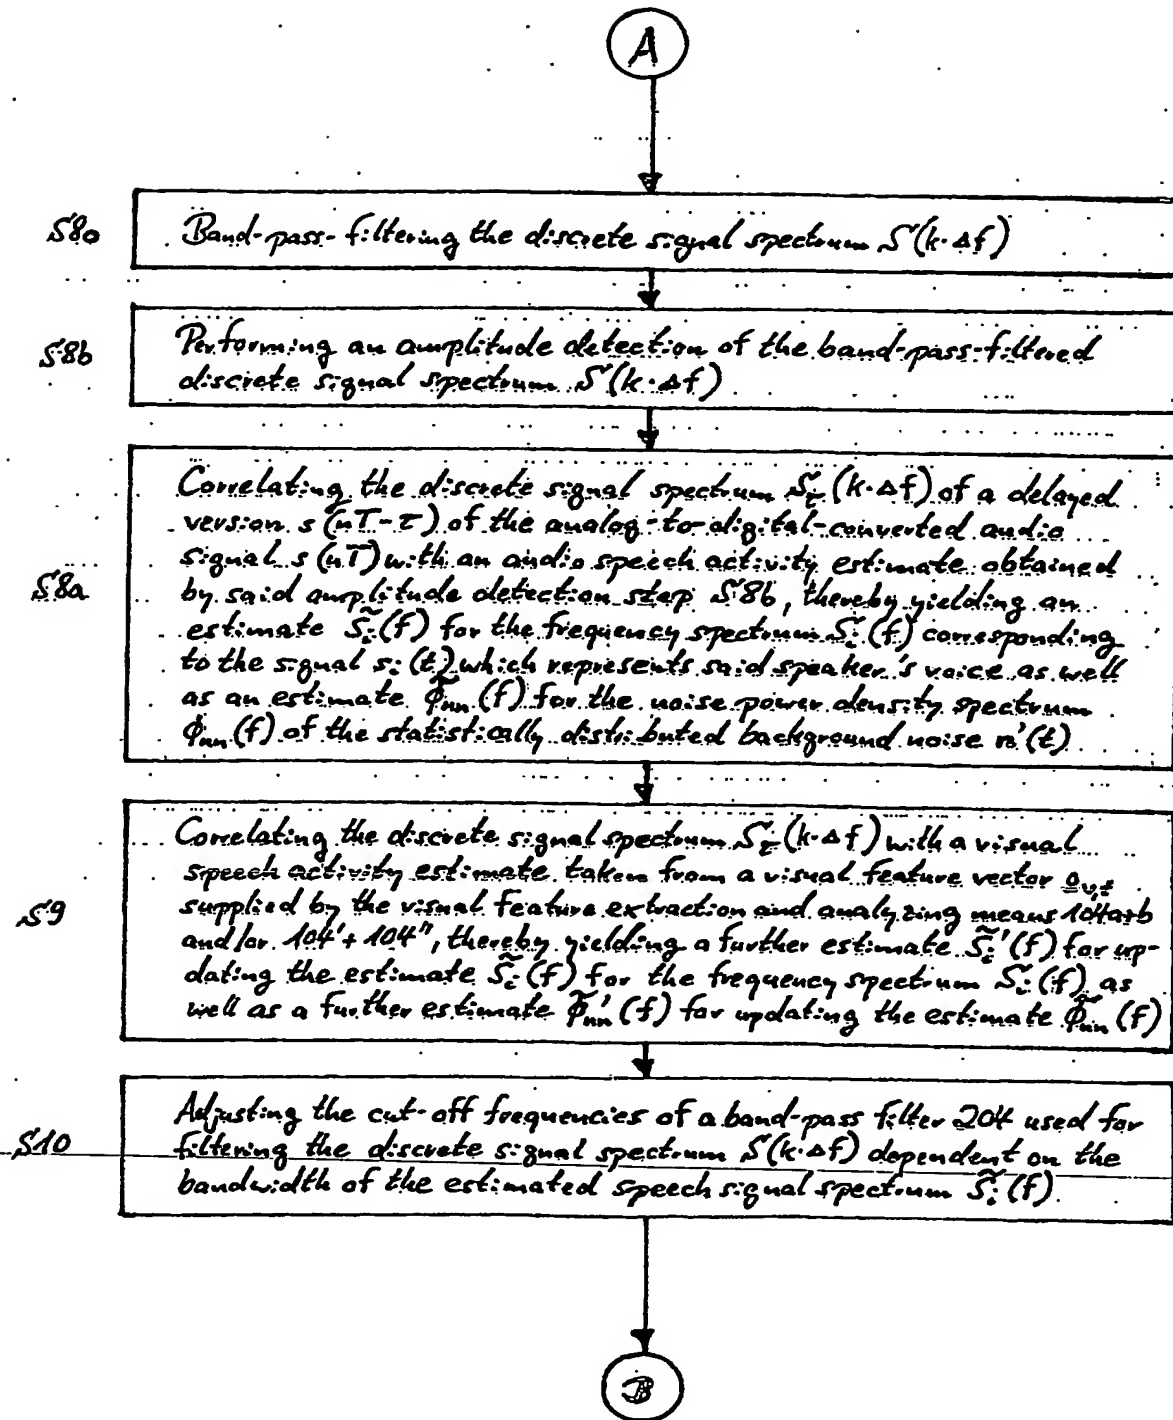 A
S8o
Band-pass-filtering the discrete signal spectrum S(k·Δf)
S8b
Performing an amplitude detection of the band-pass-filtered
discrete signal spectrum S(k·Δf)
S8a
Correlating the discrete signal spectrum S_τ(k·Δf) of a delayed
version s(nT-τ) of the analog-to-digital-converted audio
signal s(nT) with an audio speech activity estimate obtained
by said amplitude detection step S8b, thereby yielding an
estimate S̃_i(f) for the frequency spectrum S_i(f) corresponding
to the signal s_i(t) which represents said speaker's voice as well
as an estimate Φ̃_nn(f) for the noise power density spectrum
Φ_nn(f) of the statistically distributed background noise n'(t)
S9
Correlating the discrete signal spectrum S_τ(k·Δf) with a visual
speech activity estimate taken from a visual feature vector o_v,t
supplied by the visual feature extraction and analyzing means 104a+b
and/or 104'+104", thereby yielding a further estimate S̃_i'(f) for up-
dating the estimate S̃_i(f) for the frequency spectrum S_i(f) as
well as a further estimate Φ̃_nn'(f) for updating the estimate Φ̃_nn(f)
S10
Adjusting the cut-off frequencies of a band-pass filter 204 used for
filtering the discrete signal spectrum S(k·Δf) dependent on the
bandwidth of the estimated speech signal spectrum S̃_i(f)
B